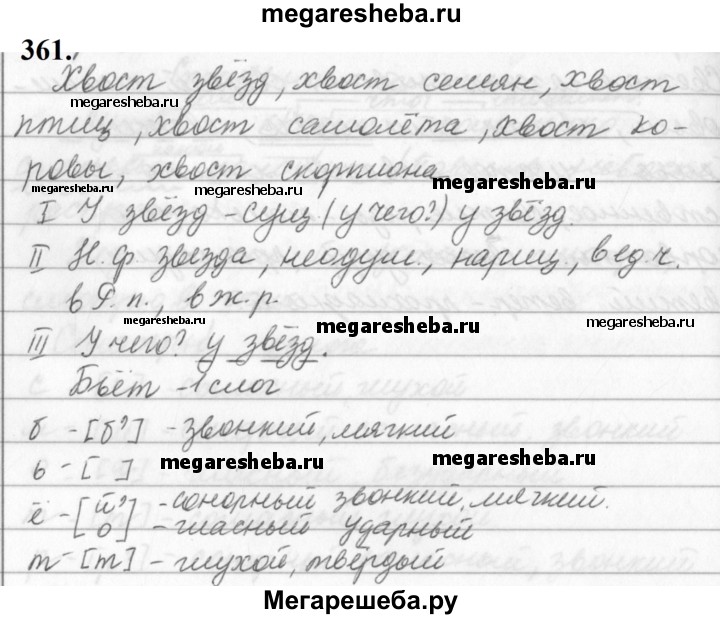 megaresheba.ru
361.
Хвост звёзд, хвост семян, хвост
megaresheba.ru
птиц, хвост самолёта, хвост ко-
ровы, хвост скорпиона
megaresheba.ru megaresheba.ru megaresheba.ru
I У звёзд - сущ. (у чего?) у звёзд.
II Н.ф. звезда, неодуш., нариц., в ед.ч.
в Р.п., в ж.р.
megaresheba.ru megaresheba.ru megaresheba.ru
III У чего? у звёзд.
Бьёт - 1 слог
б - [б'] - звонкий, мягкий
ь - [ ]
megaresheba.ru megaresheba.ru
ё - [й' о] - сонорный звонкий, мягкий.
- гласный ударный
т - [т] - глухой, твёрдый
Мегарешеба.ру